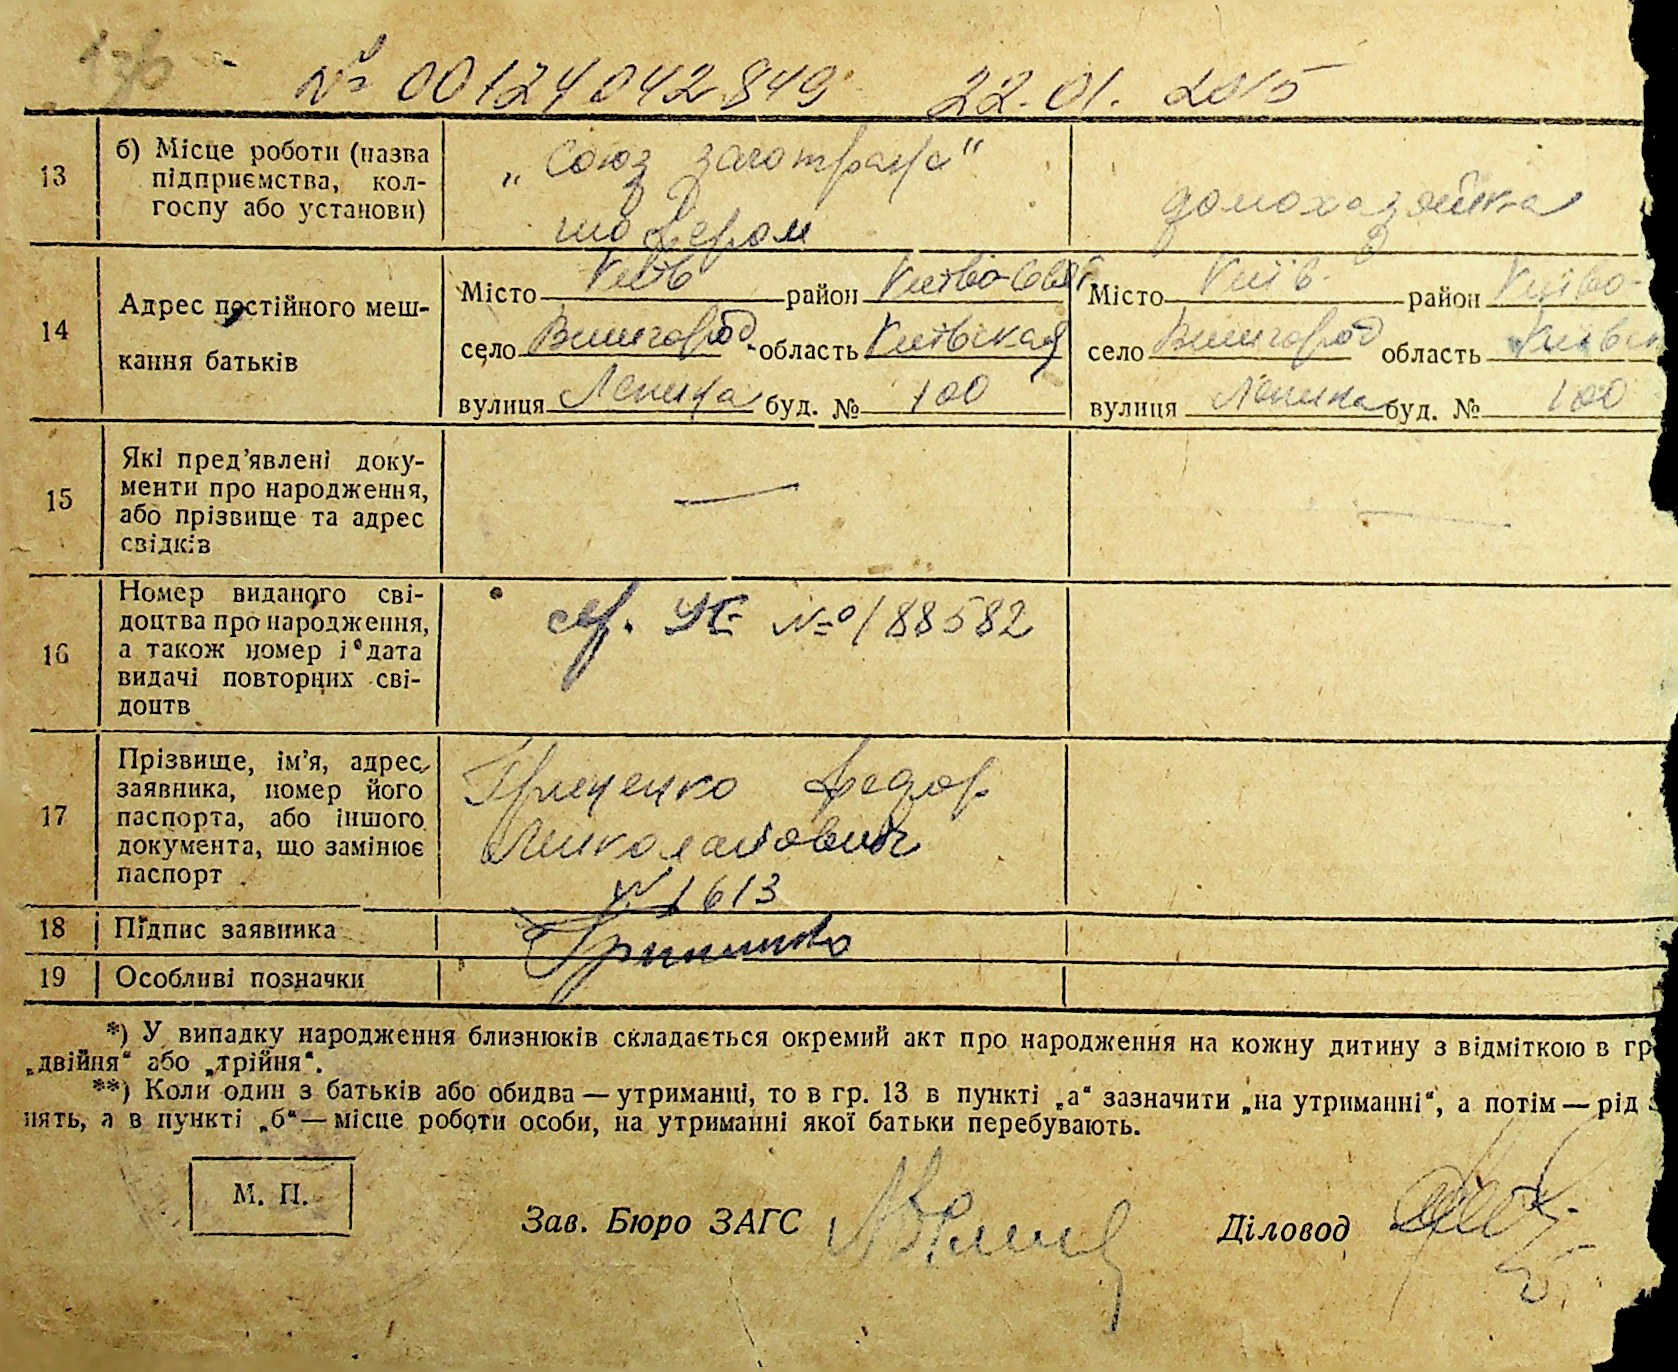 № 00124042849 22.01.2015
13 б) Місце роботи (назва підприємства, кол-
госпу або установи)
„Союз заготтранс“
шофером
домохазяйка
14 Адрес постійного меш-
кання батьків
Місто Київ район Київо-Свят
село Вишгород область Київская
вулиця Леніна буд. № 100
Місто Київ район Київо-
село Вишгород область Київск
вулиця Леніна буд. № 100
15 Які пред’явлені доку-
менти про народження,
або прізвище та адрес
свідків
—
—
16 Номер виданого сві-
доцтва про народження,
а також номер і дата
видачі повторних сві-
доцтв
сер. УК № 188582
17 Прізвище, ім’я, адрес
заявника, номер його
паспорта, або іншого
документа, що замінює
паспорт
Гриценко Федор
Николайович
№ 1613
18 Підпис заявника
Гриценко
19 Особливі позначки
*) У випадку народження близнюків складається окремий акт про народження на кожну дитину з відміткою в гр
„двійня“ або „трійня“.
**) Коли один з батьків або обидва — утриманці, то в гр. 13 в пункті „а“ зазначити „на утриманні“, а потім — рід з
нять, а в пункті „б“ — місце роботи особи, на утриманні якої батьки перебувають.
М. П.
Зав. Бюро ЗАГС
Діловод